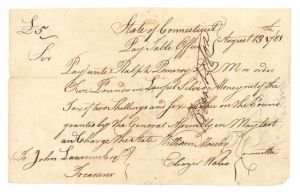 £5
State of Connecticut
Pay Table Office August 23th 1781
Sir
Pay unto Ralph Pomeroy or order
Five Pounds in Lawful Silver Money out of the
Tax of two Shillings and six pence on the Pound
granted by the General Assembly in May last
and Charge the State William Moseley
To John Lawrence Esqr Eleazr Wales Committee
Treasurer